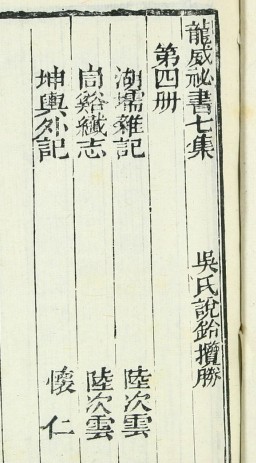 龍威祕書七集 吳氏說鈴攬勝
第四册
湖壖雜記 陸次雲
峝谿纖志 陸次雲
坤輿外記 懷仁